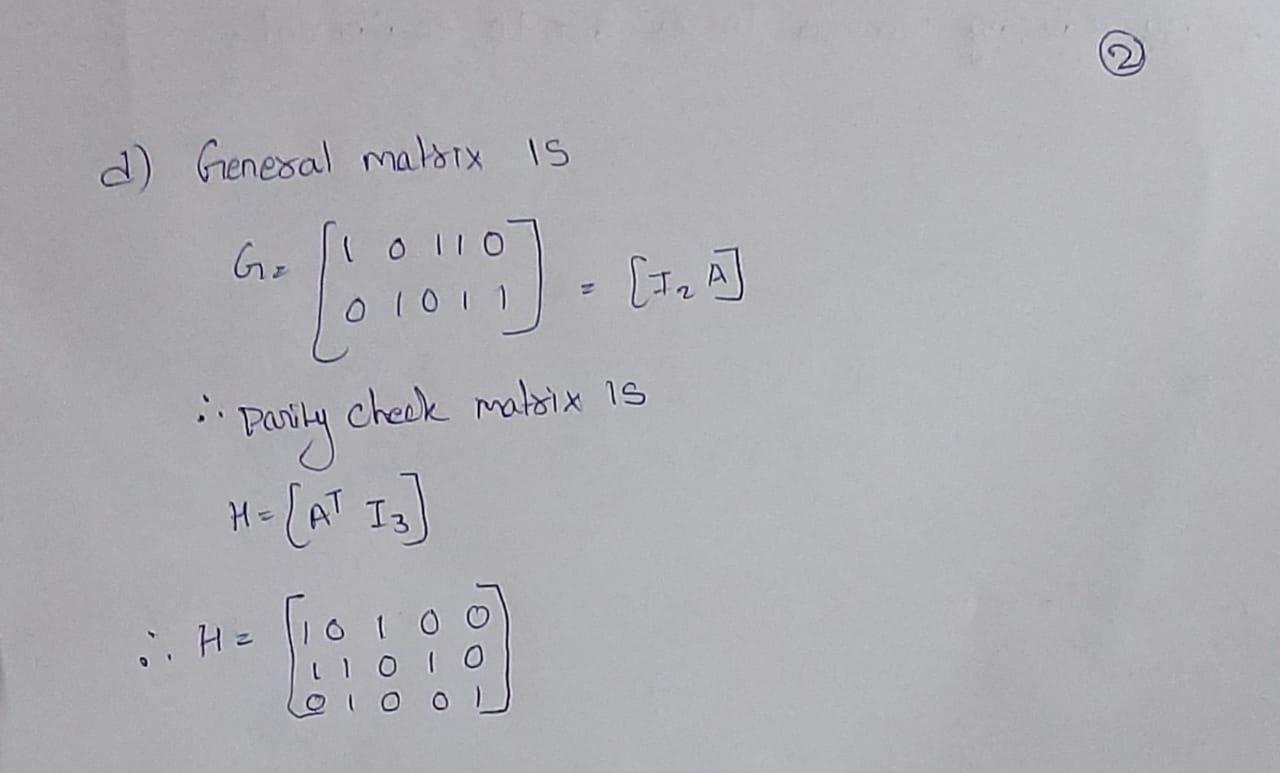 ②
d) General matrix is
G = [1 0 1 1 0
0 1 0 1 1] = [I₂ A]
∴ parity check matrix is
H = [Aᵀ I₃]
∴ H = [1 0 1 0 0
1 1 0 1 0
0 1 0 0 1]